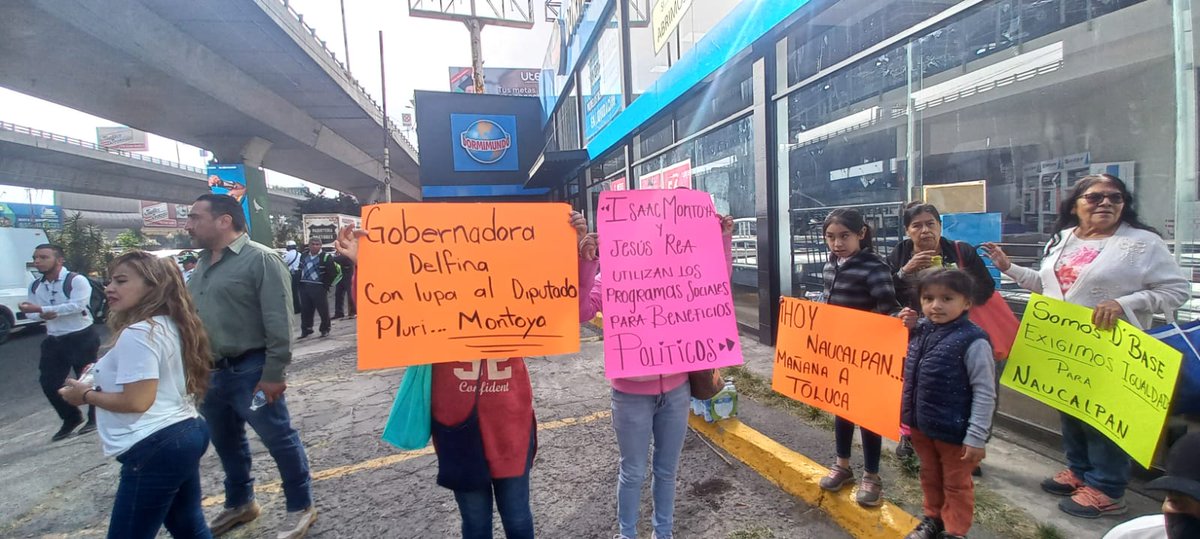 Ute
Tus metas
DORMIMUNDO
ABRIMOS
Gobernadora
Delfina
Con lupa al Diputado
Pluri... Montoya
"Isaac Montoya
y
Jesús Rea
utilizan los
Programas Sociales
para Beneficios
Políticos"
¡Hoy
Naucalpan
Mañana a
Toluca
Somos D'Base
Exigimos Igualdad
Para
Naucalpan
Confident